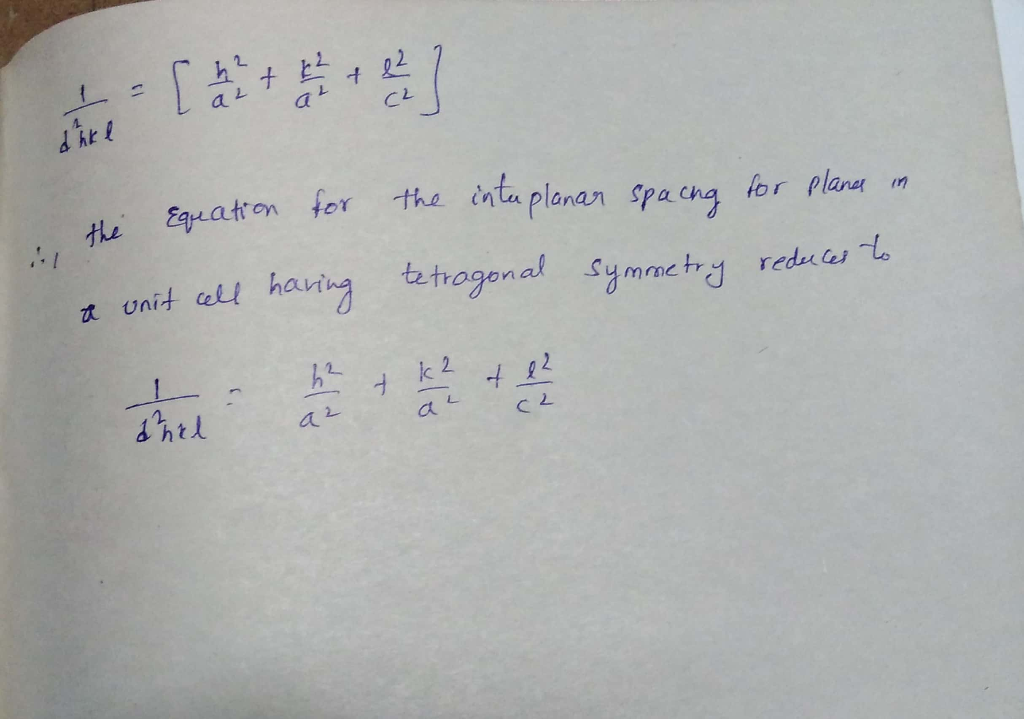 1/d²hkl = [ h²/a² + k²/a² + l²/c² ]
∴, the Equation for the interplanar spacng for planes in
a unit cell having tetragonal symmetry reduces to
1/d²hkl = h²/a² + k²/a² + l²/c²